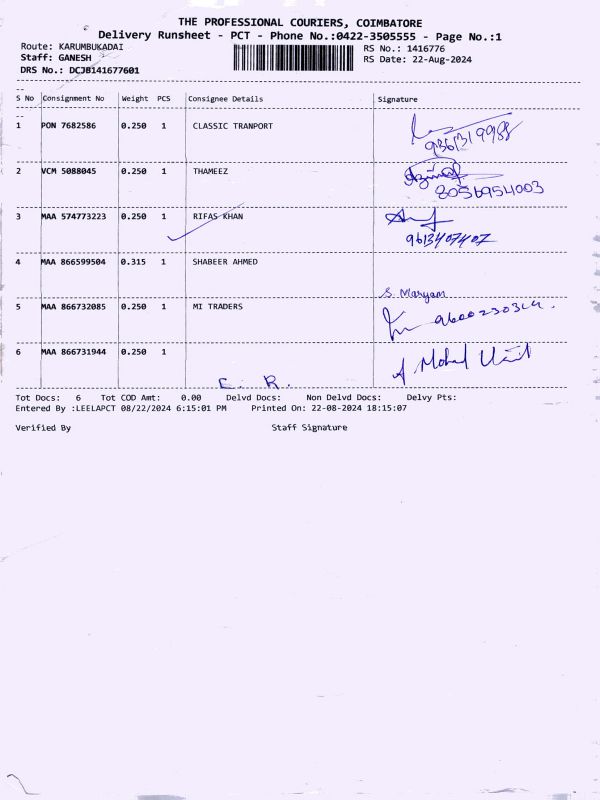 THE PROFESSIONAL COURIERS, COIMBATORE
Delivery Runsheet - PCT - Phone No.:0422-3505555 - Page No.:1
Route: KARUMBUKADAI RS No.: 1416776
Staff: GANESH RS Date: 22-Aug-2024
DRS No.: DCJB141677601
S No Consignment No Weight PCS Consignee Details Signature
1 PON 7682586 0.250 1 CLASSIC TRANPORT
9361319988
2 VCM 5088045 0.250 1 THAMEEZ
8056954003
3 MAA 574773223 0.250 1 RIFAS KHAN
9613407407
4 MAA 866599504 0.315 1 SHABEER AHMED
S. Maryam
5 MAA 866732085 0.250 1 MI TRADERS
6 MAA 866731944 0.250 1
Mohd
E. R.
Tot Docs: 6 Tot COD Amt: 0.00 Delvd Docs: Non Delvd Docs: Delvy Pts:
Entered By :LEELAPCT 08/22/2024 6:15:01 PM Printed On: 22-08-2024 18:15:07
Verified By Staff Signature